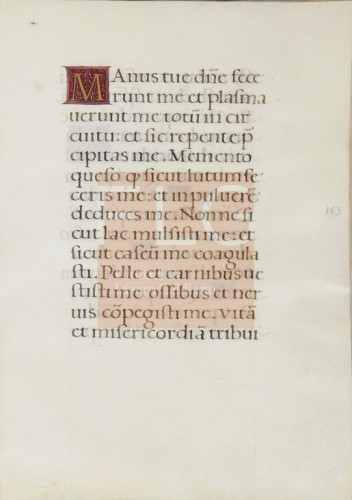 MAnus tue dñe fece
runt me et plasma
uerunt me totũ in cir
cuitu: et sic repente p̃
cipitas me. Memento
queso ꝙ sicut lutum fe
ceris me: et in puluerẽ
deduces me. Nonne si
cut lac mulsisti me: et
sicut caseũ me coagula
sti. Pelle et carnibus ue
stisti me ossibus et ner
uis cõpegisti me. vitã
et misericordiã tribui
163